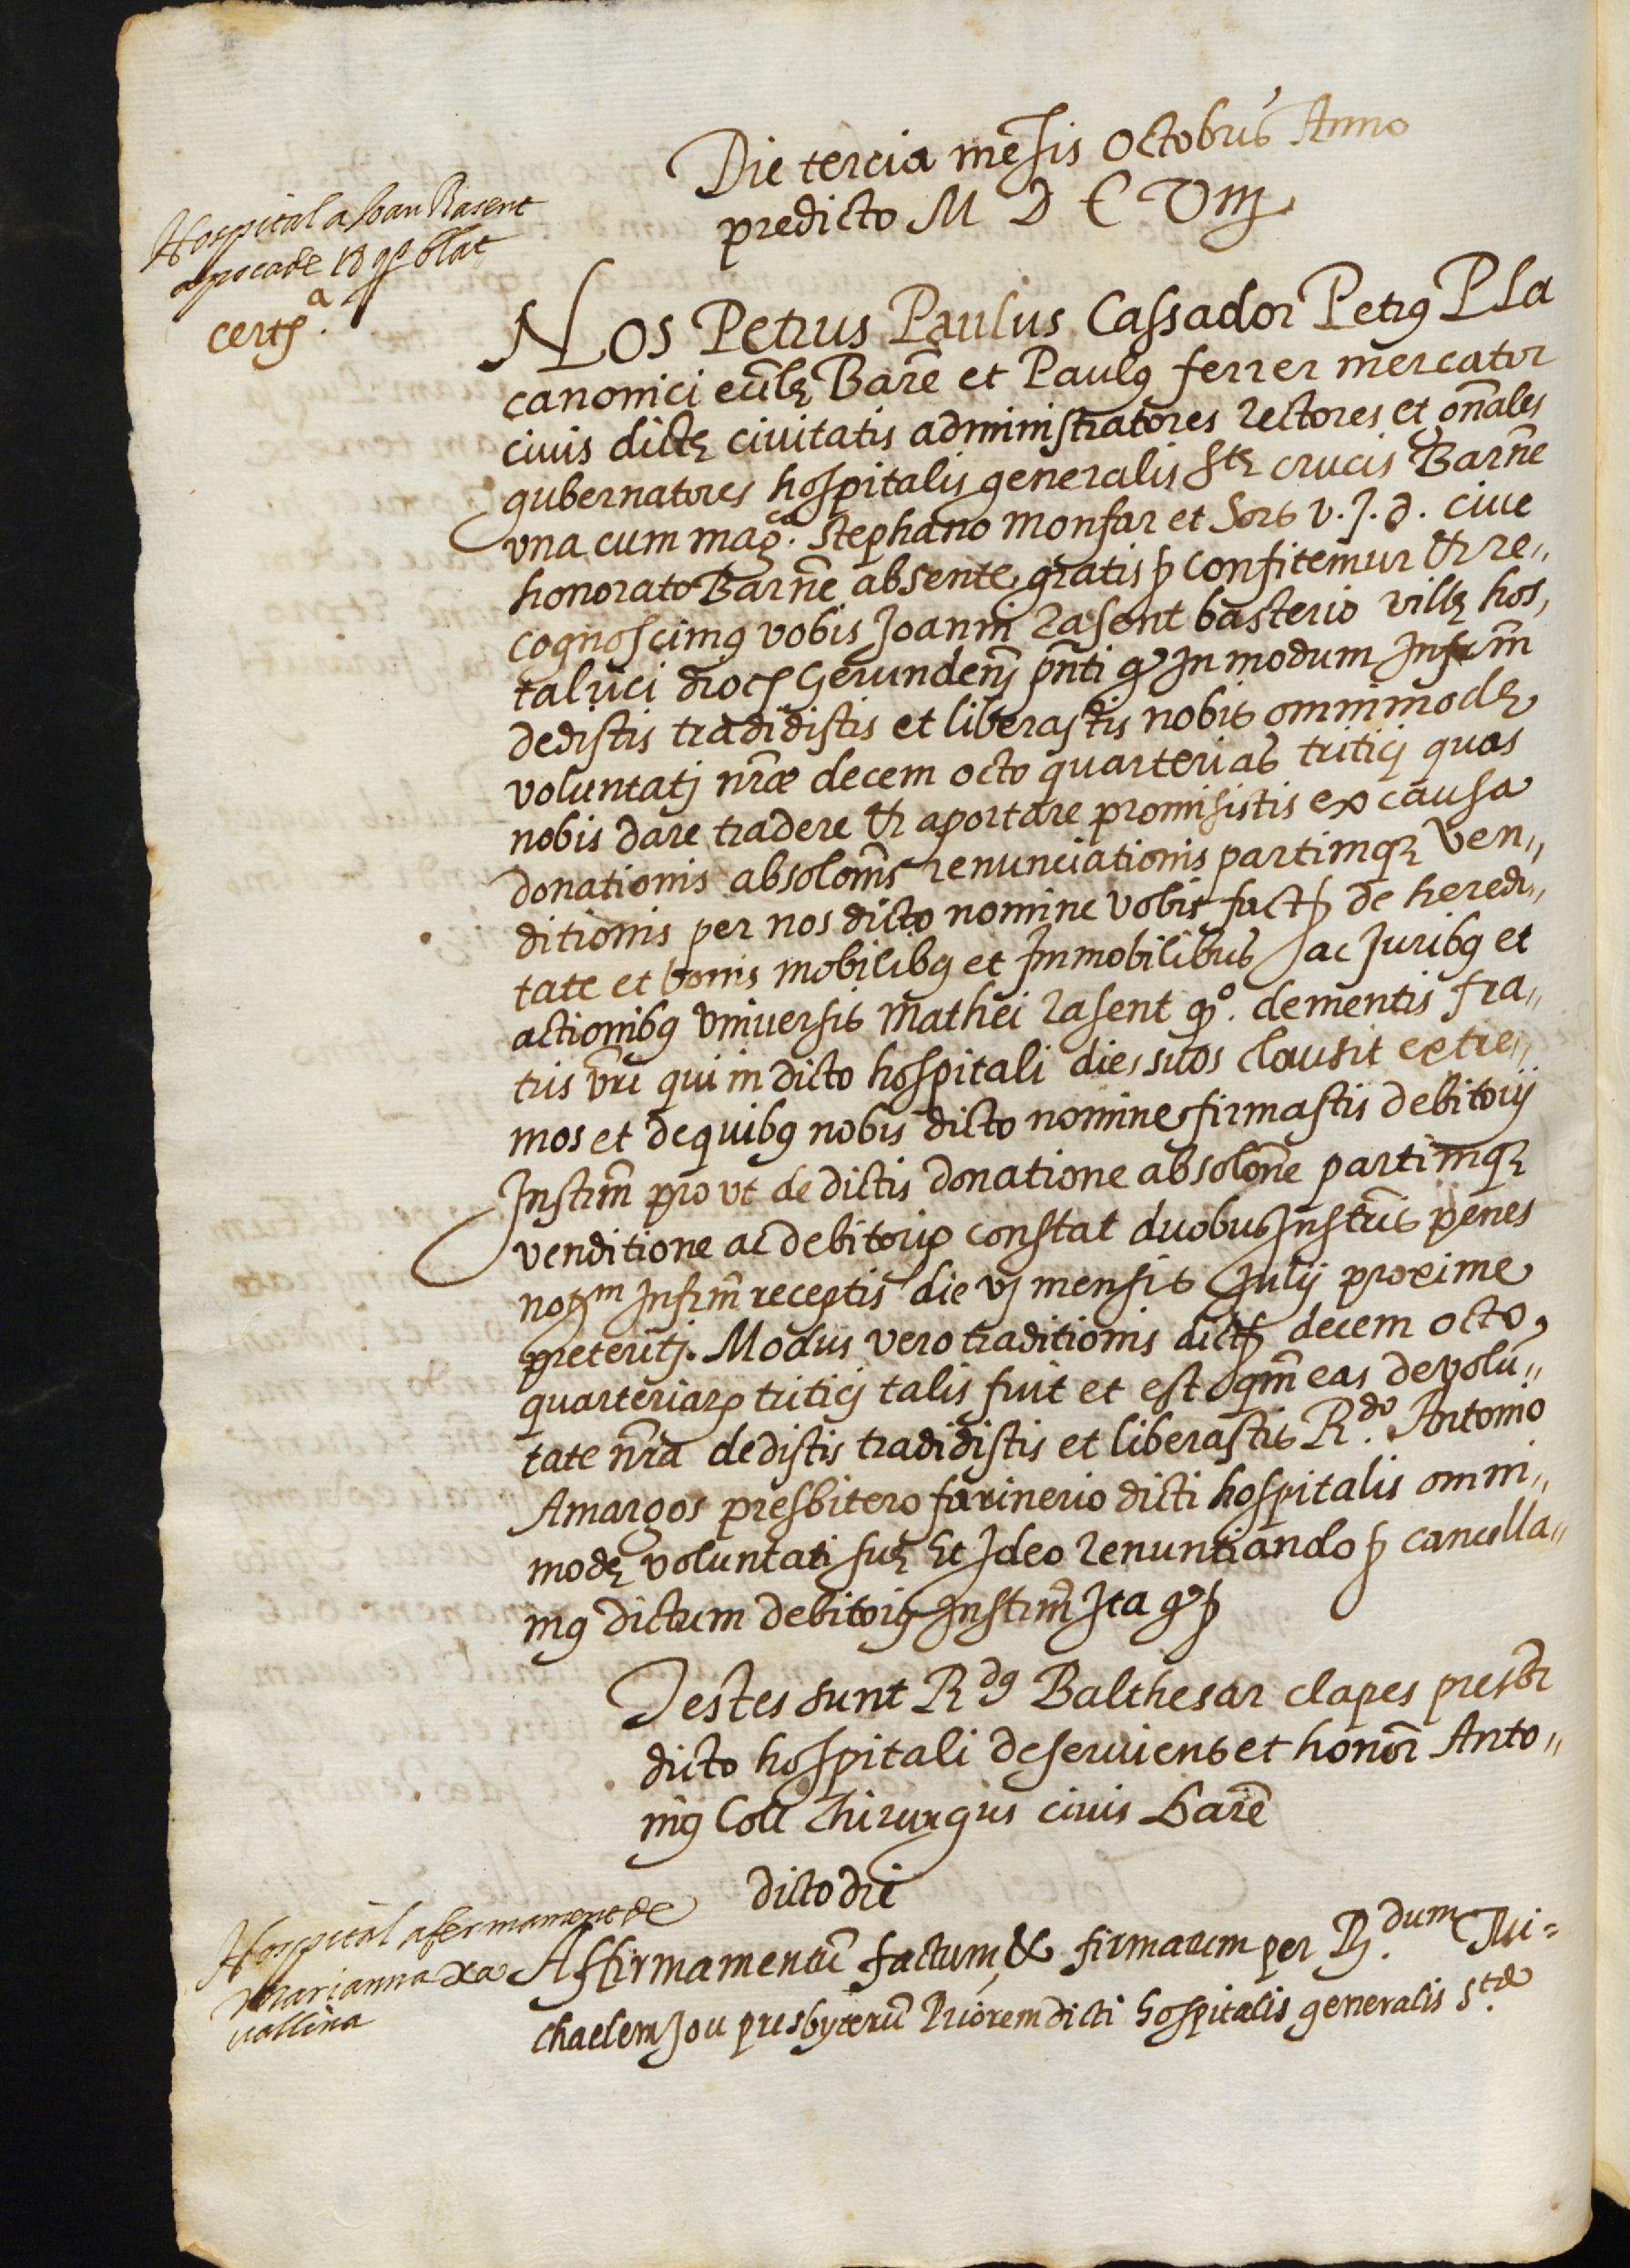 Die tercia mēsis Octobris Anno
predicto M D C Viiij
Hospital a Joan Rasent
apoca de 18 qrs blat
certfa.
Nos Petrus Paulus Cassador Petrus Pla
canonici eccle Barne et Paulus ferrer mercator
civis dicte civitatis administratores rectores et ōnales
gubernatores hospitalis generalis Ste crucis Barne
una cum magco. Stephano Monfar et Sors v. J. d. cive
honorato Barne absente gratis & confitemur et re„
cognoscimus vobis Joanni Rasent basterio ville hos,
talrici dioc Gerunden pnti q in modum infrm
dedistis tradidistis et liberastis nobis omnimode
voluntati nre decem octo quarterias tritici quas
nobis dare tradere et aportare promisistis ex causa
donationis absolonis renunciationis partimque ven„
ditionis per nos dicto nomine vobis fact de heredi„
tate et bonis mobilibus et Immobilibus ac Juribus et
actionibus universis Mathei Rasent qo. dementis fra„
tris vri qui in dicto hospitali dies suos clausit extre„
mos et de quibus nobis dicto nomine firmastis debitorij
Instrm prout de dictis donatione absolone partimque
venditione ac debitorio constat duobus Instris penes
notm Infrm receptis die vj mensis Julij proxime
preteriti. Modus vero traditionis dict decem octo,
quarteriar tritici talis fuit et est qm eas de volu„
tate nra dedistis tradidistis et liberastis Rdo. Antonio
Amargos presbitero farinerio dicti hospitalis omni„
mode voluntati sue Et Ideo renuntiando & cancella„
mus dictum debitorij Instrm Ita q &
Testes sunt Rdus Balthesar clapes presbr
dicto hospitali deserviens et honor Anto„
nius Coll Chirurgus civis Barne
dicto die
Hospital afermament de
Marianna xa
vallina
Affirmamentū factum & firmatum per Rdum. Mi=
chaelem Jou presbyterū Priorem dicti hospitalis generalis Ste